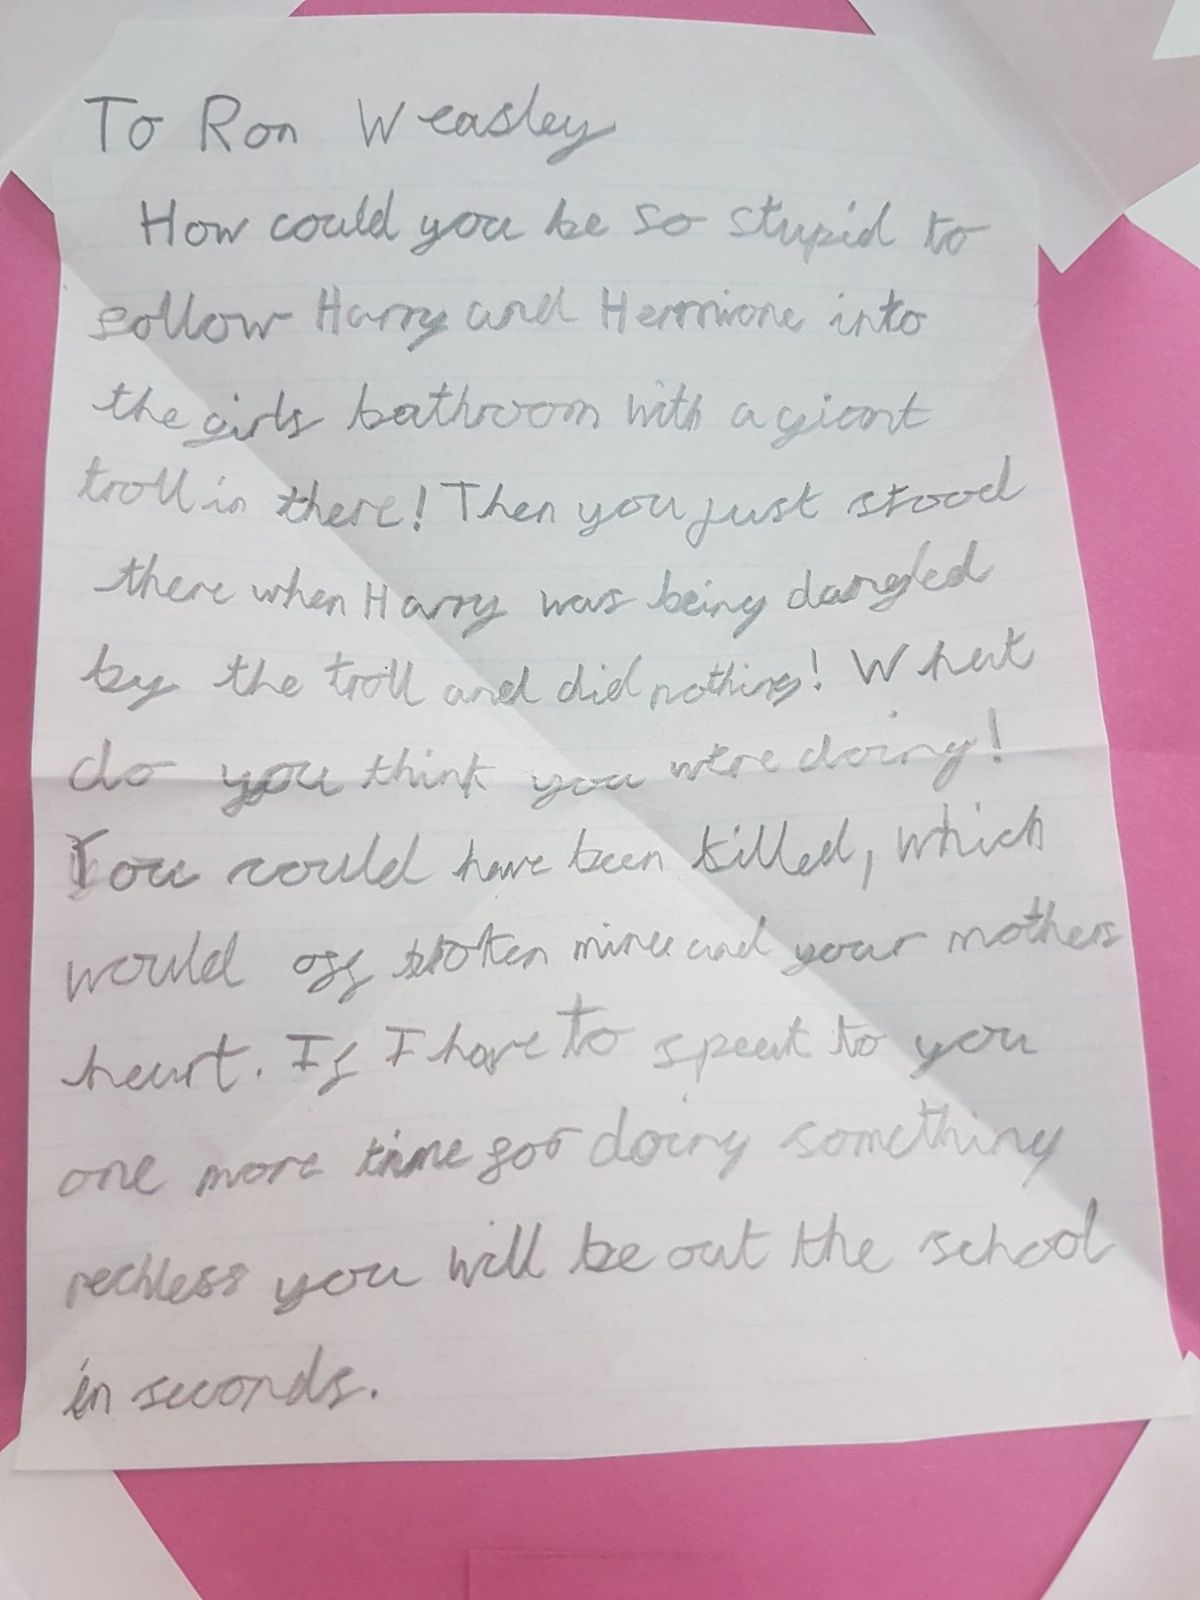 To Ron Weasley
How could you be so stupid to
follow Harry and Hermione into
the girls bathroom with a giant
troll in there! Then you just stood
there when Harry was being dangled
by the troll and did nothing! What
do you think you were doing!
You could have been killed, which
would off broken mine and your mothers
heart. If I have to speak to you
one more time for doing something
reckless you will be out the school
in seconds.